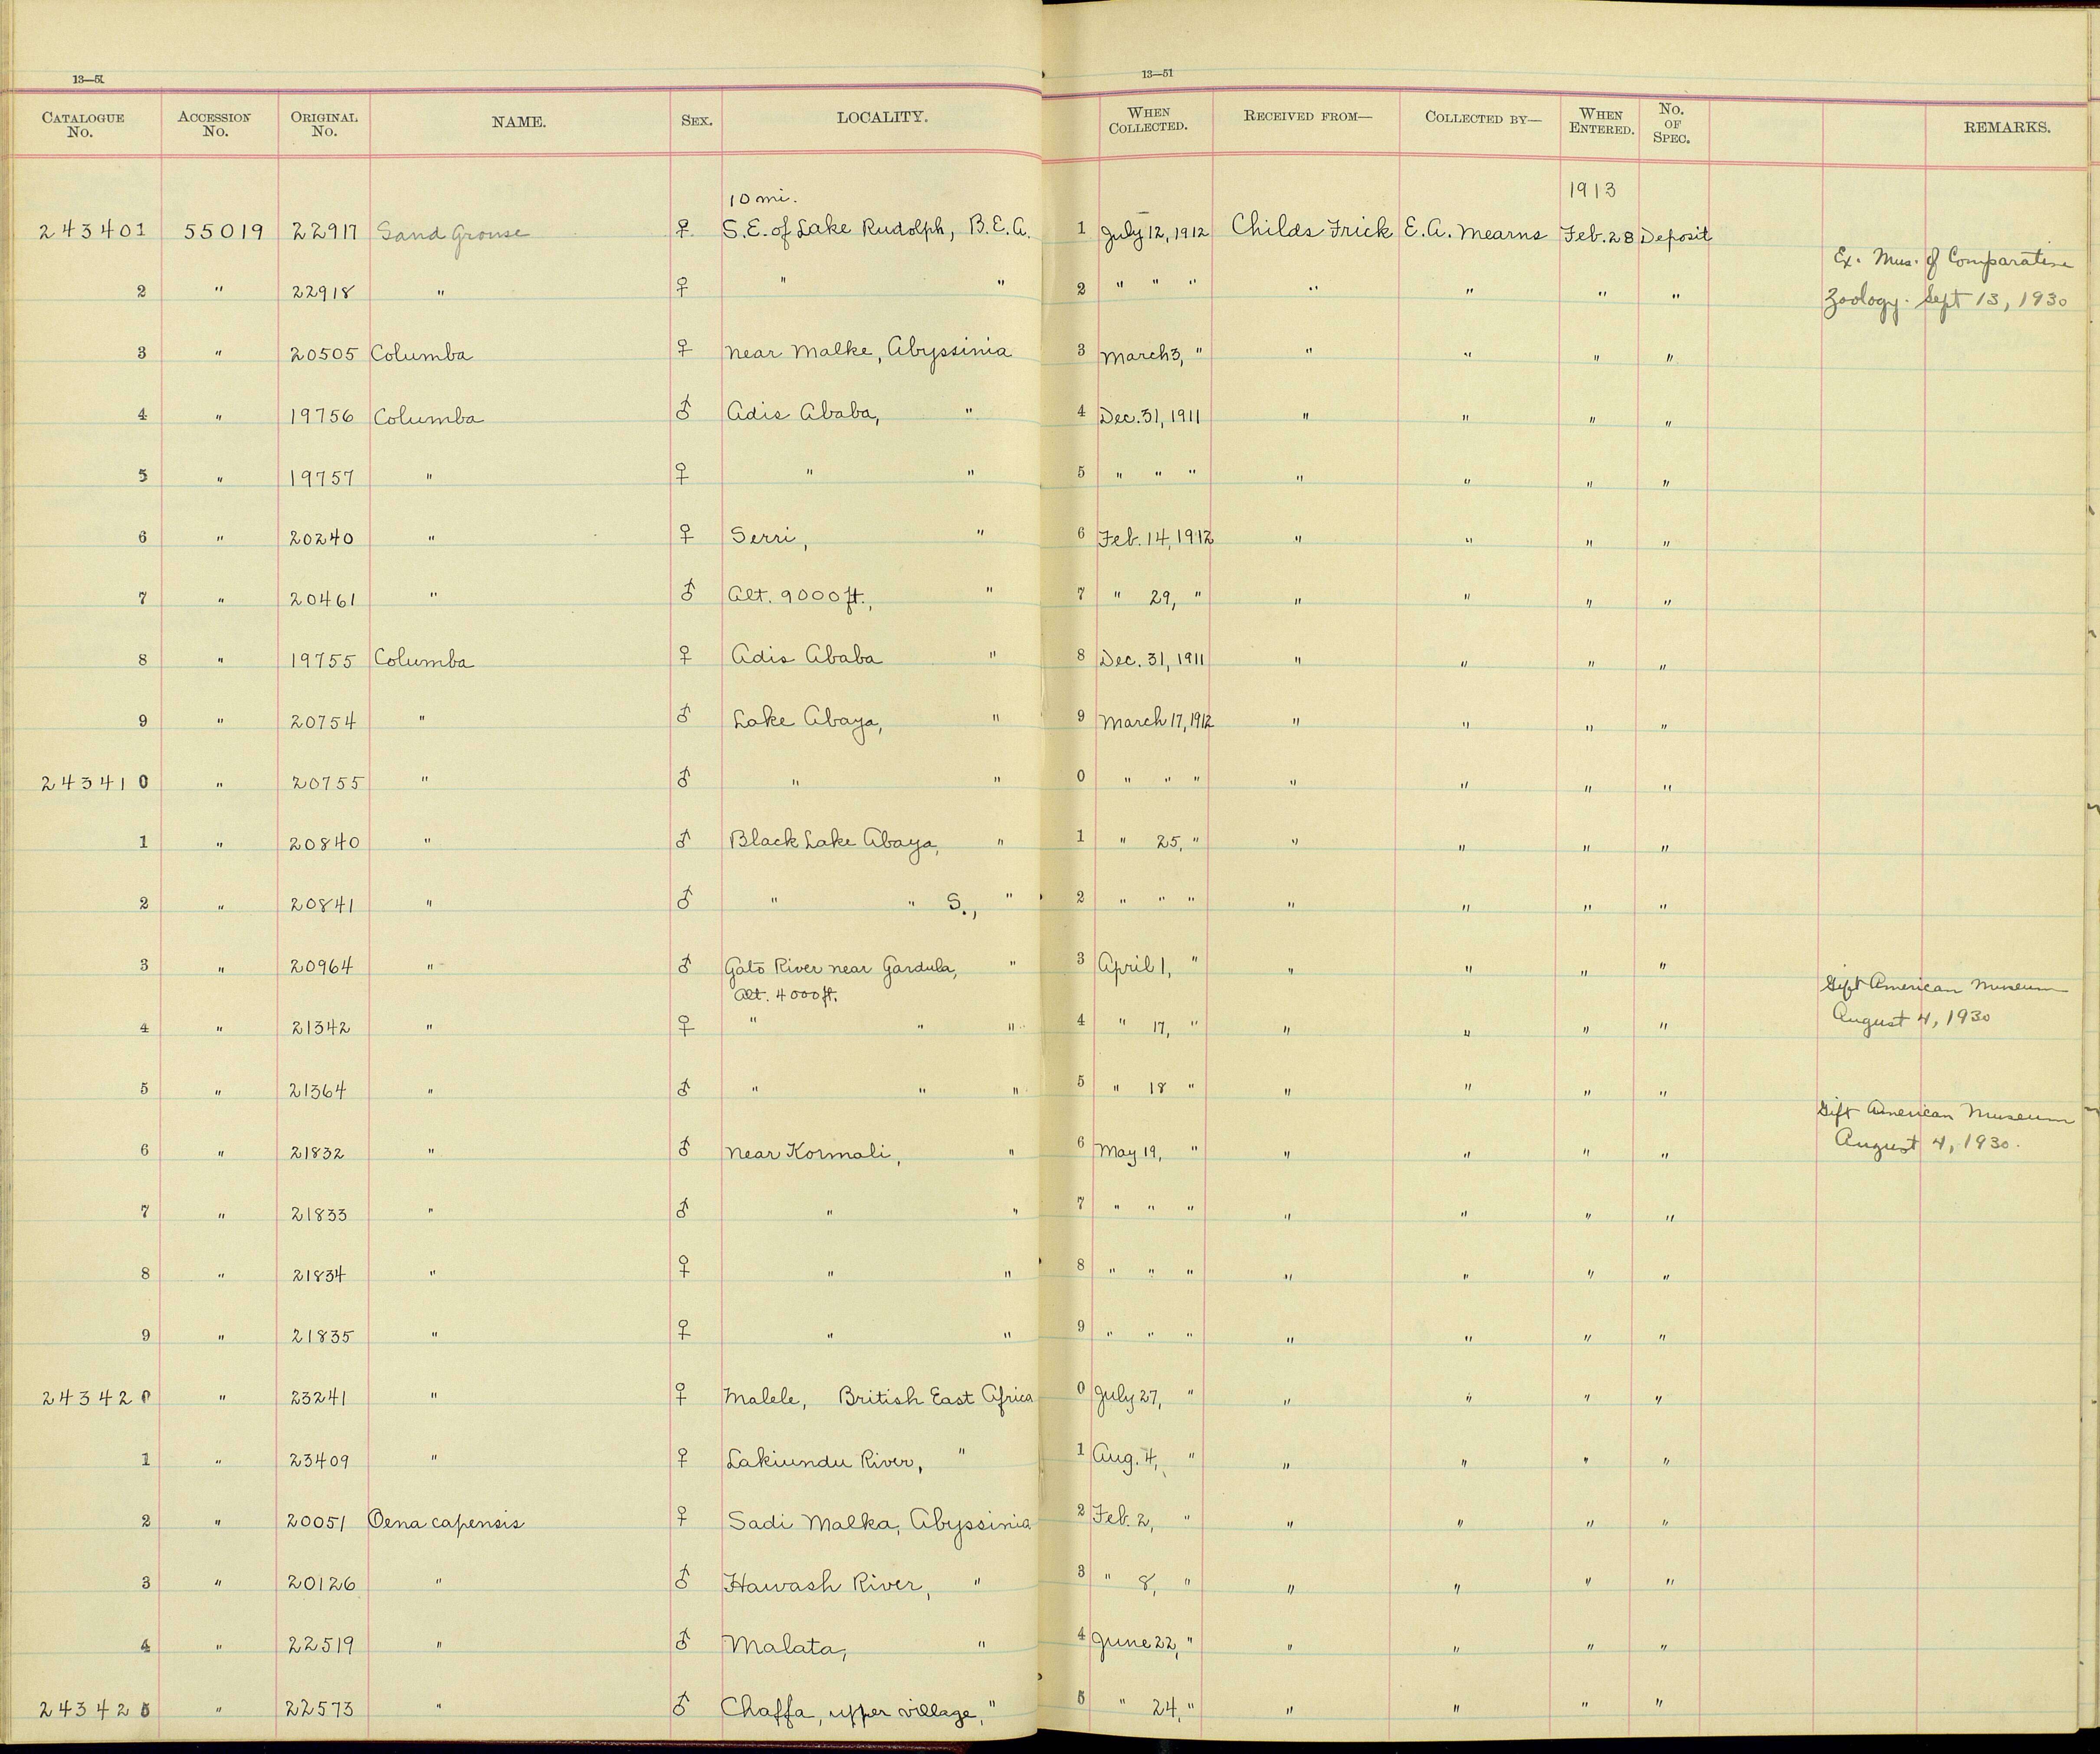 13—51 13—51
CATALOGUE No. ACCESSION No. ORIGINAL No. NAME. SEX. LOCALITY. WHEN COLLECTED. RECEIVED FROM— COLLECTED BY— WHEN ENTERED. No. OF SPEC. REMARKS.
10 mi. 1913
243401 55019 22917 Sand Grouse ♀ S.E. of Lake Rudolph, B.E.A. 1 July 12, 1912 Childs Frick E.A. Mearns Feb. 28 Deposit
Ex. Mus. of Comparative
2 " 22918 " ♀ " " 2 " " " " " " " Zoology. Sept 13, 1930
3 " 20505 Columba ♀ near Malke, Abyssinia 3 March 3, " " " " "
4 " 19756 Columba ♂ Adis Ababa, " 4 Dec. 31, 1911 " " " "
5 " 19757 " ♀ " " 5 " " " " " " "
6 " 20240 " ♀ Serri, " 6 Feb. 14, 1912 " " " "
7 " 20461 " ♂ Alt. 9000 ft., " 7 " 29, " " " " "
8 " 19755 Columba ♀ Adis Ababa " 8 Dec. 31, 1911 " " " "
9 " 20754 " ♂ Lake Abaya, " 9 March 17, 1912 " " " "
243410 " 20755 " ♂ " " 0 " " " " " " "
1 " 20840 " ♂ Black Lake Abaya, " 1 " 25, " " " " "
2 " 20841 " ♂ " " S., " 2 " " " " " " "
3 " 20964 " ♂ Gato River near Gardula, " 3 April 1, " " " " " Gift American Museum
Alt. 4000 ft.
4 " 21342 " ♀ " " " 4 " 17, " " " " " August 4, 1930
5 " 21364 " ♂ " " " 5 " 18 " " " " "
Gift American Museum
6 " 21832 " ♂ near Kormali, " 6 May 19, " " " " " August 4, 1930.
7 " 21833 " ♂ " " 7 " " " " " " "
8 " 21834 " ♀ " " 8 " " " " " " "
9 " 21835 " ♀ " " 9 " " " " " " "
243420 " 23241 " ♀ Malele, British East Africa 0 July 27, " " " " "
1 " 23409 " ♀ Lakiundu River, " 1 Aug. 4, " " " " "
2 " 20051 Oena capensis ♀ Sadi Malka, Abyssinia 2 Feb. 2, " " " " "
3 " 20126 " ♂ Hawash River, " 3 " 8, " " " " "
4 " 22519 " ♂ Malata, " 4 June 22, " " " " "
243425 " 22573 " ♂ Chaffa, upper village, " 5 " 24, " " " " "